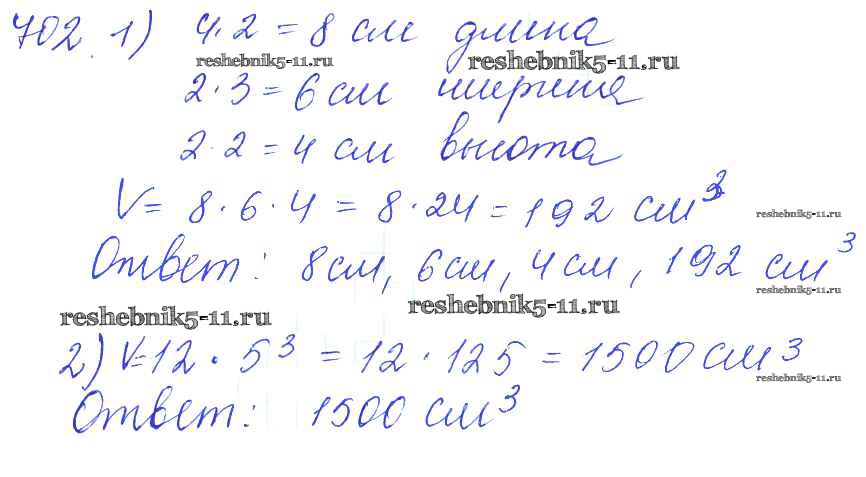 702 1) 4·2 = 8 см длина
reshebnik5-11.ru reshebnik5-11.ru
2·3 = 6 см ширина
2·2 = 4 см высота
V = 8·6·4 = 8·24 = 192 см³
reshebnik5-11.ru
Ответ: 8 см, 6 см, 4 см, 192 см³
reshebnik5-11.ru
reshebnik5-11.ru reshebnik5-11.ru
2) V=12·5³ = 12·125 = 1500 см³
reshebnik5-11.ru
Ответ: 1500 см³